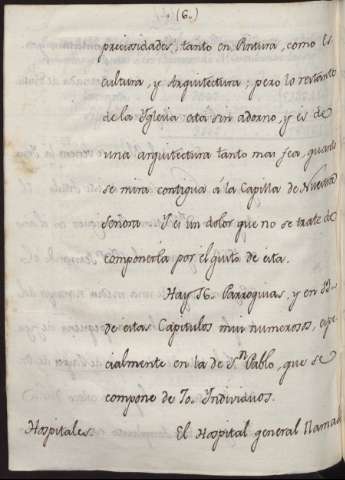 (6.)
preciosidades, tanto en Pintura, como Es
cultura, y Arquitectura; pero lo restante
de la Yglesia està sin adorno, y és de
una arquitectura tanto mas fea, quanto
se mira contigua á la Capilla de Nuestra
Señora. Y es un dolor que no se trate de
componerla por el gusto de ésta.
Hay 16. Parroquias; y en
de estas Capitulos muy numerosos, espe
cialmente en la de Sn. Pablo, que se
compone de 70. Individuos.
Hospitales. El Hospital general llamado